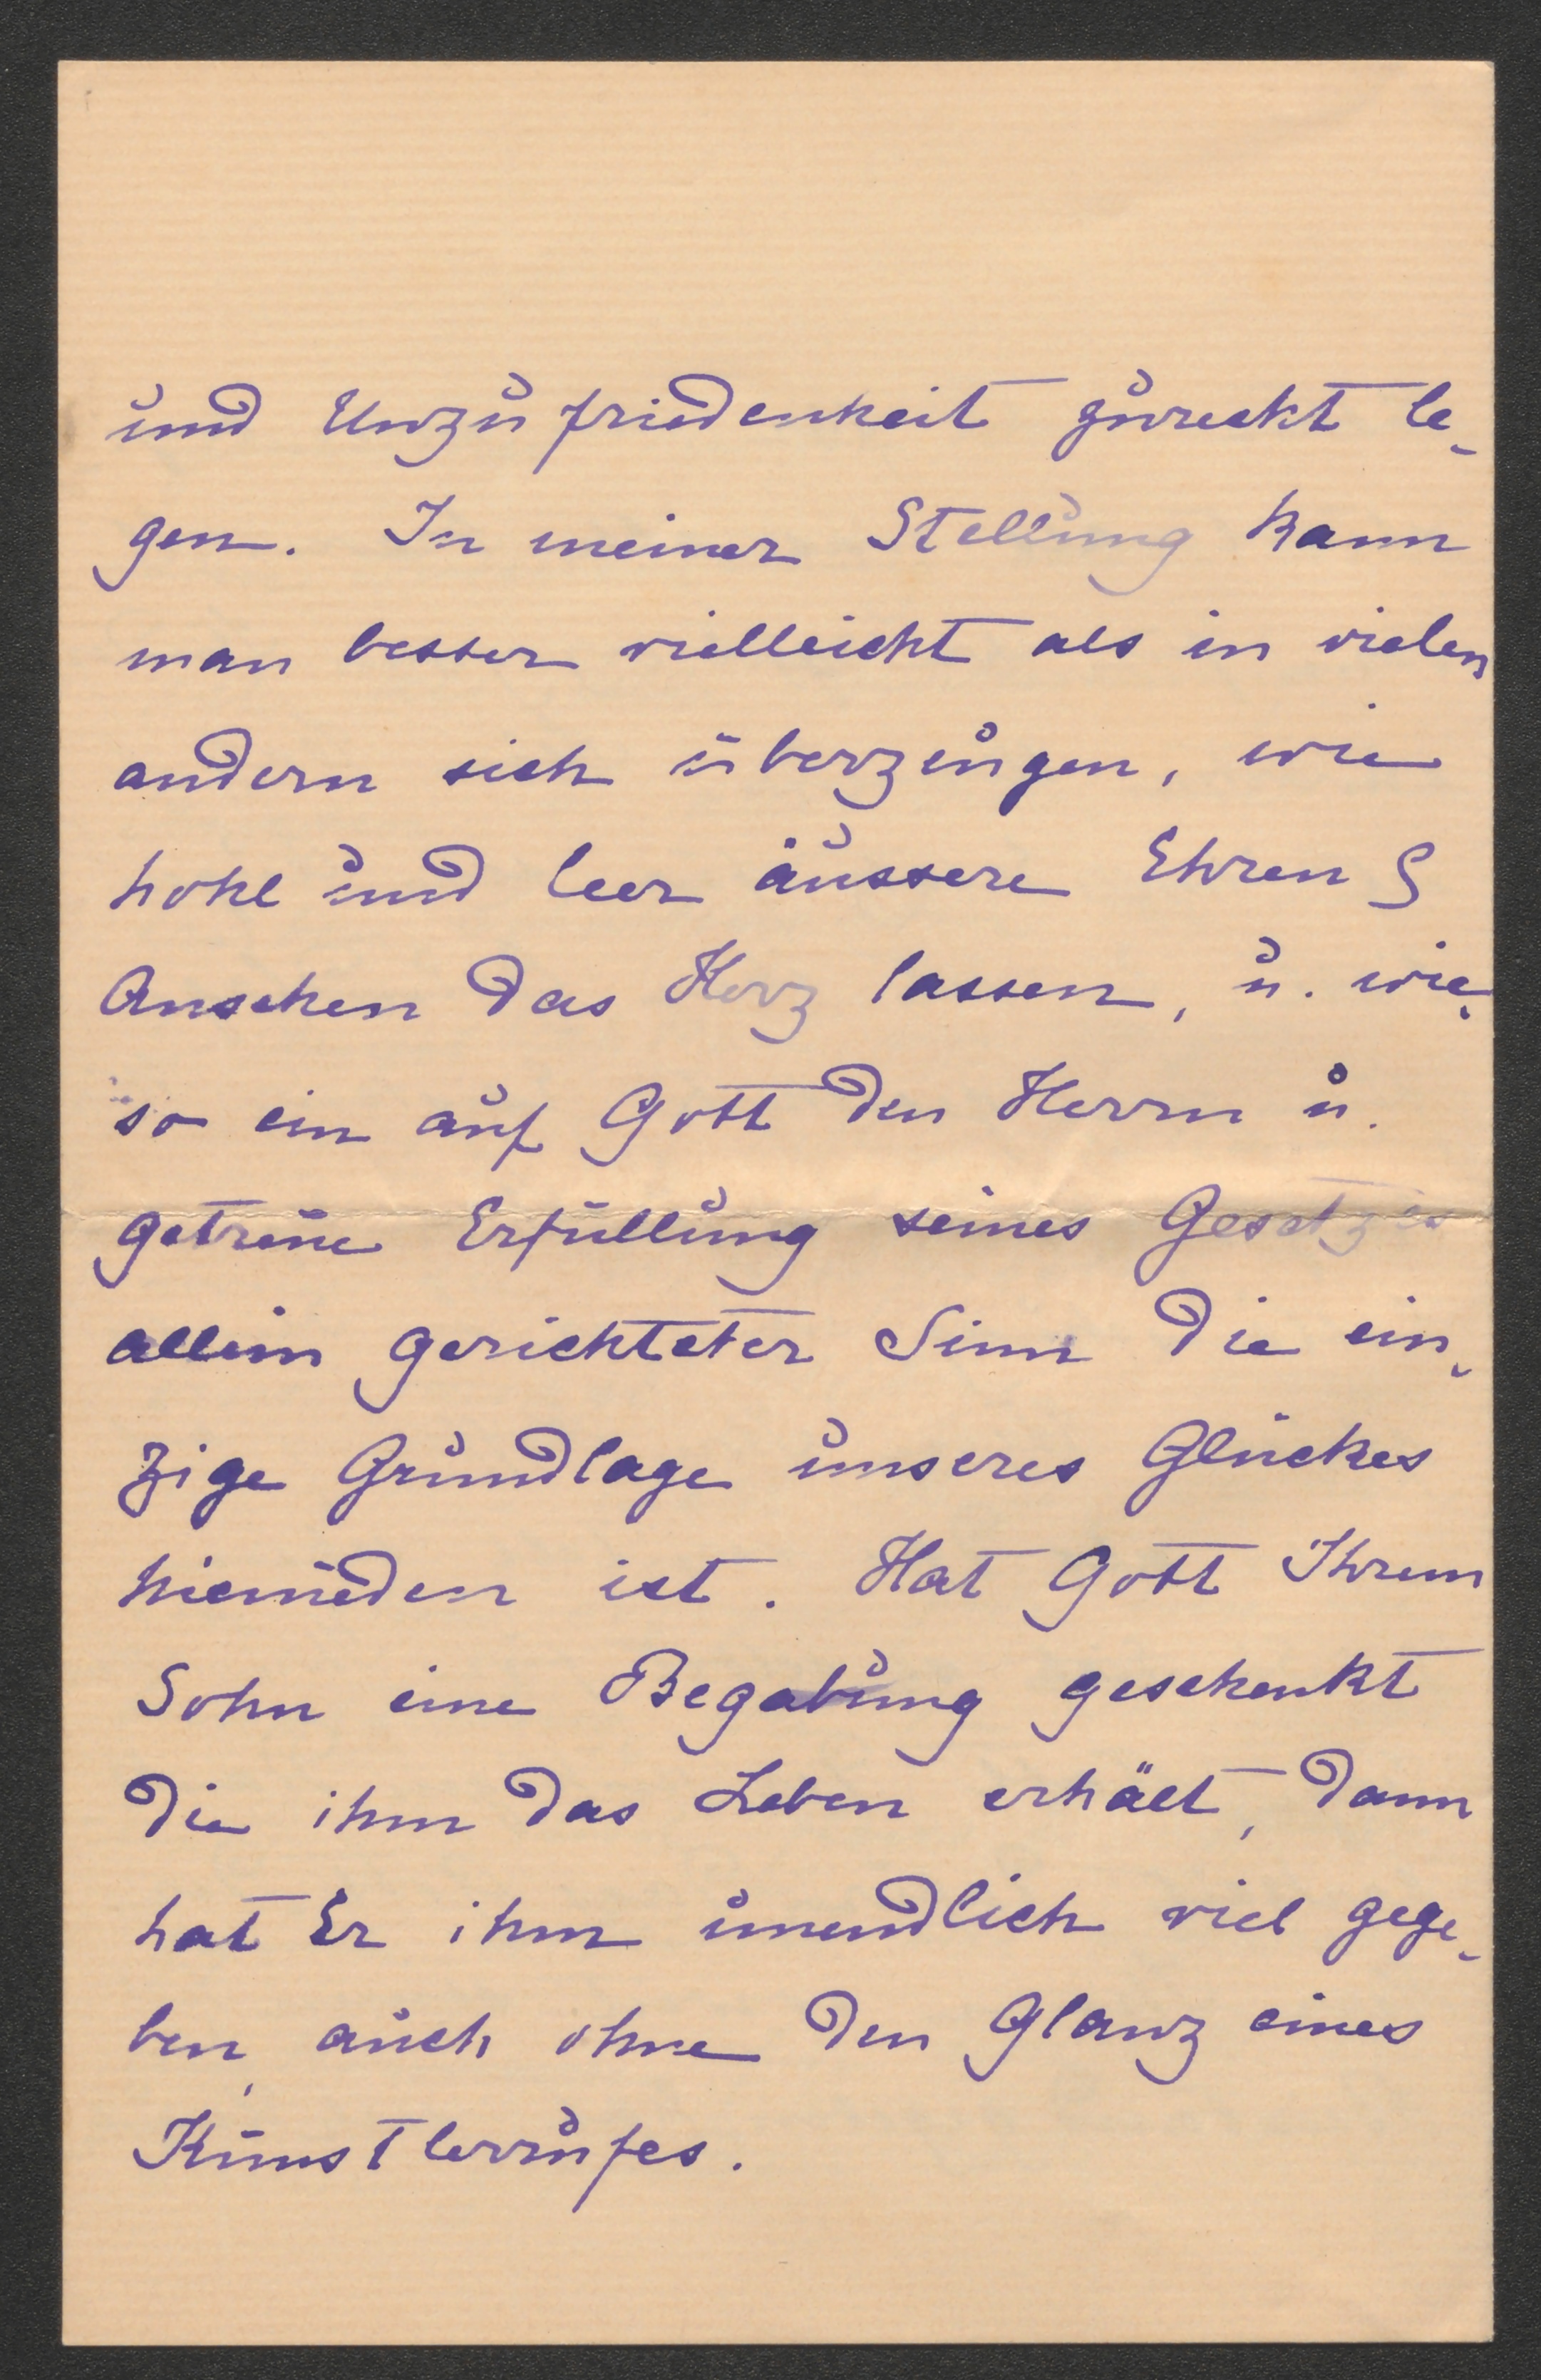 und Unzufriedenheit zurecht le-
gen. In meiner Stellung kann
man besser vielleicht als in vielen
andern sich überzeugen, wie
hohl und leer äussere Ehren &
Ansehen das Herz lassen, u. wie
so ein auf Gott den Herrn u.
getreue Erfüllung seines Gesetzes
allein gerichteter Sinn die ein-
zige Grundlage unseres Glückes
hienieden ist. Hat Gott Ihrem
Sohn eine Begabung geschenkt
die ihm das Leben erhält, dann
hat Er ihm unendlich viel gege-
ben, auch ohne den Glanz eines
Künstlerrufes.